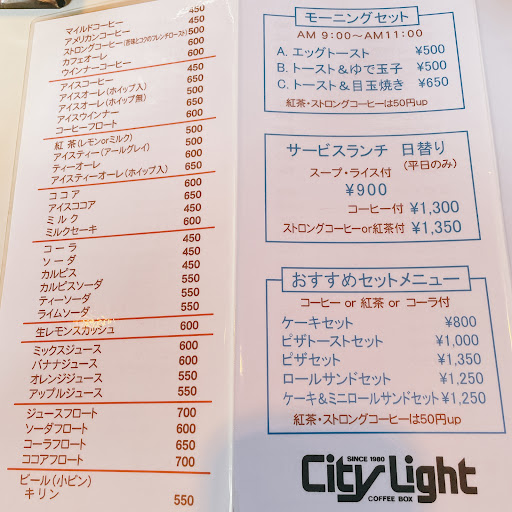 マイルドコーヒー 450
アメリカンコーヒー 450
ストロングコーヒー(苦味とコクのフレンチロースト) 500
カフェオーレ 500
ウインナーコーヒー 600
アイスコーヒー 450
アイスオーレ(ホイップ入) 650
アイスオーレ(ホイップ無)
アイスウインナー 600
コーヒーフロート 600
紅茶(レモンorミルク) 500
アイスティー(アールグレイ) 500
ティーオーレ 600
アイスティーオーレ(ホイップ入) 650
ココア 600
アイスココア 450
ミルク 600
ミルクセーキ
コーラ 450
ソーダ 450
カルピス 450
カルピスソーダ 550
ティーソーダ 550
ライムソーダ 550
生レモンスカッシュ 600
ミックスジュース 600
バナナジュース 600
オレンジジュース 550
アップルジュース 550
ジュースフロート 700
ソーダフロート 600
コーラフロート 650
ココアフロート 700
ビール(小ビン)
キリン 550
モーニングセット
AM 9:00～AM11:00
A. エッグトースト ¥500
B. トースト&ゆで玉子 ¥500
C. トースト&目玉焼き ¥650
紅茶・ストロングコーヒーは50円up
サービスランチ 日替り
(平日のみ)
スープ・ライス付
¥900
コーヒー付 ¥1,300
ストロングコーヒーor紅茶付 ¥1,350
おすすめセットメニュー
コーヒー or 紅茶 or コーラ付
ケーキセット ¥800
ピザトーストセット ¥1,000
ピザセット ¥1,350
ロールサンドセット ¥1,250
ケーキ&ミニロールサンドセット ¥1,250
紅茶・ストロングコーヒーは50円up
SINCE 1980
City Light
COFFEE BOX